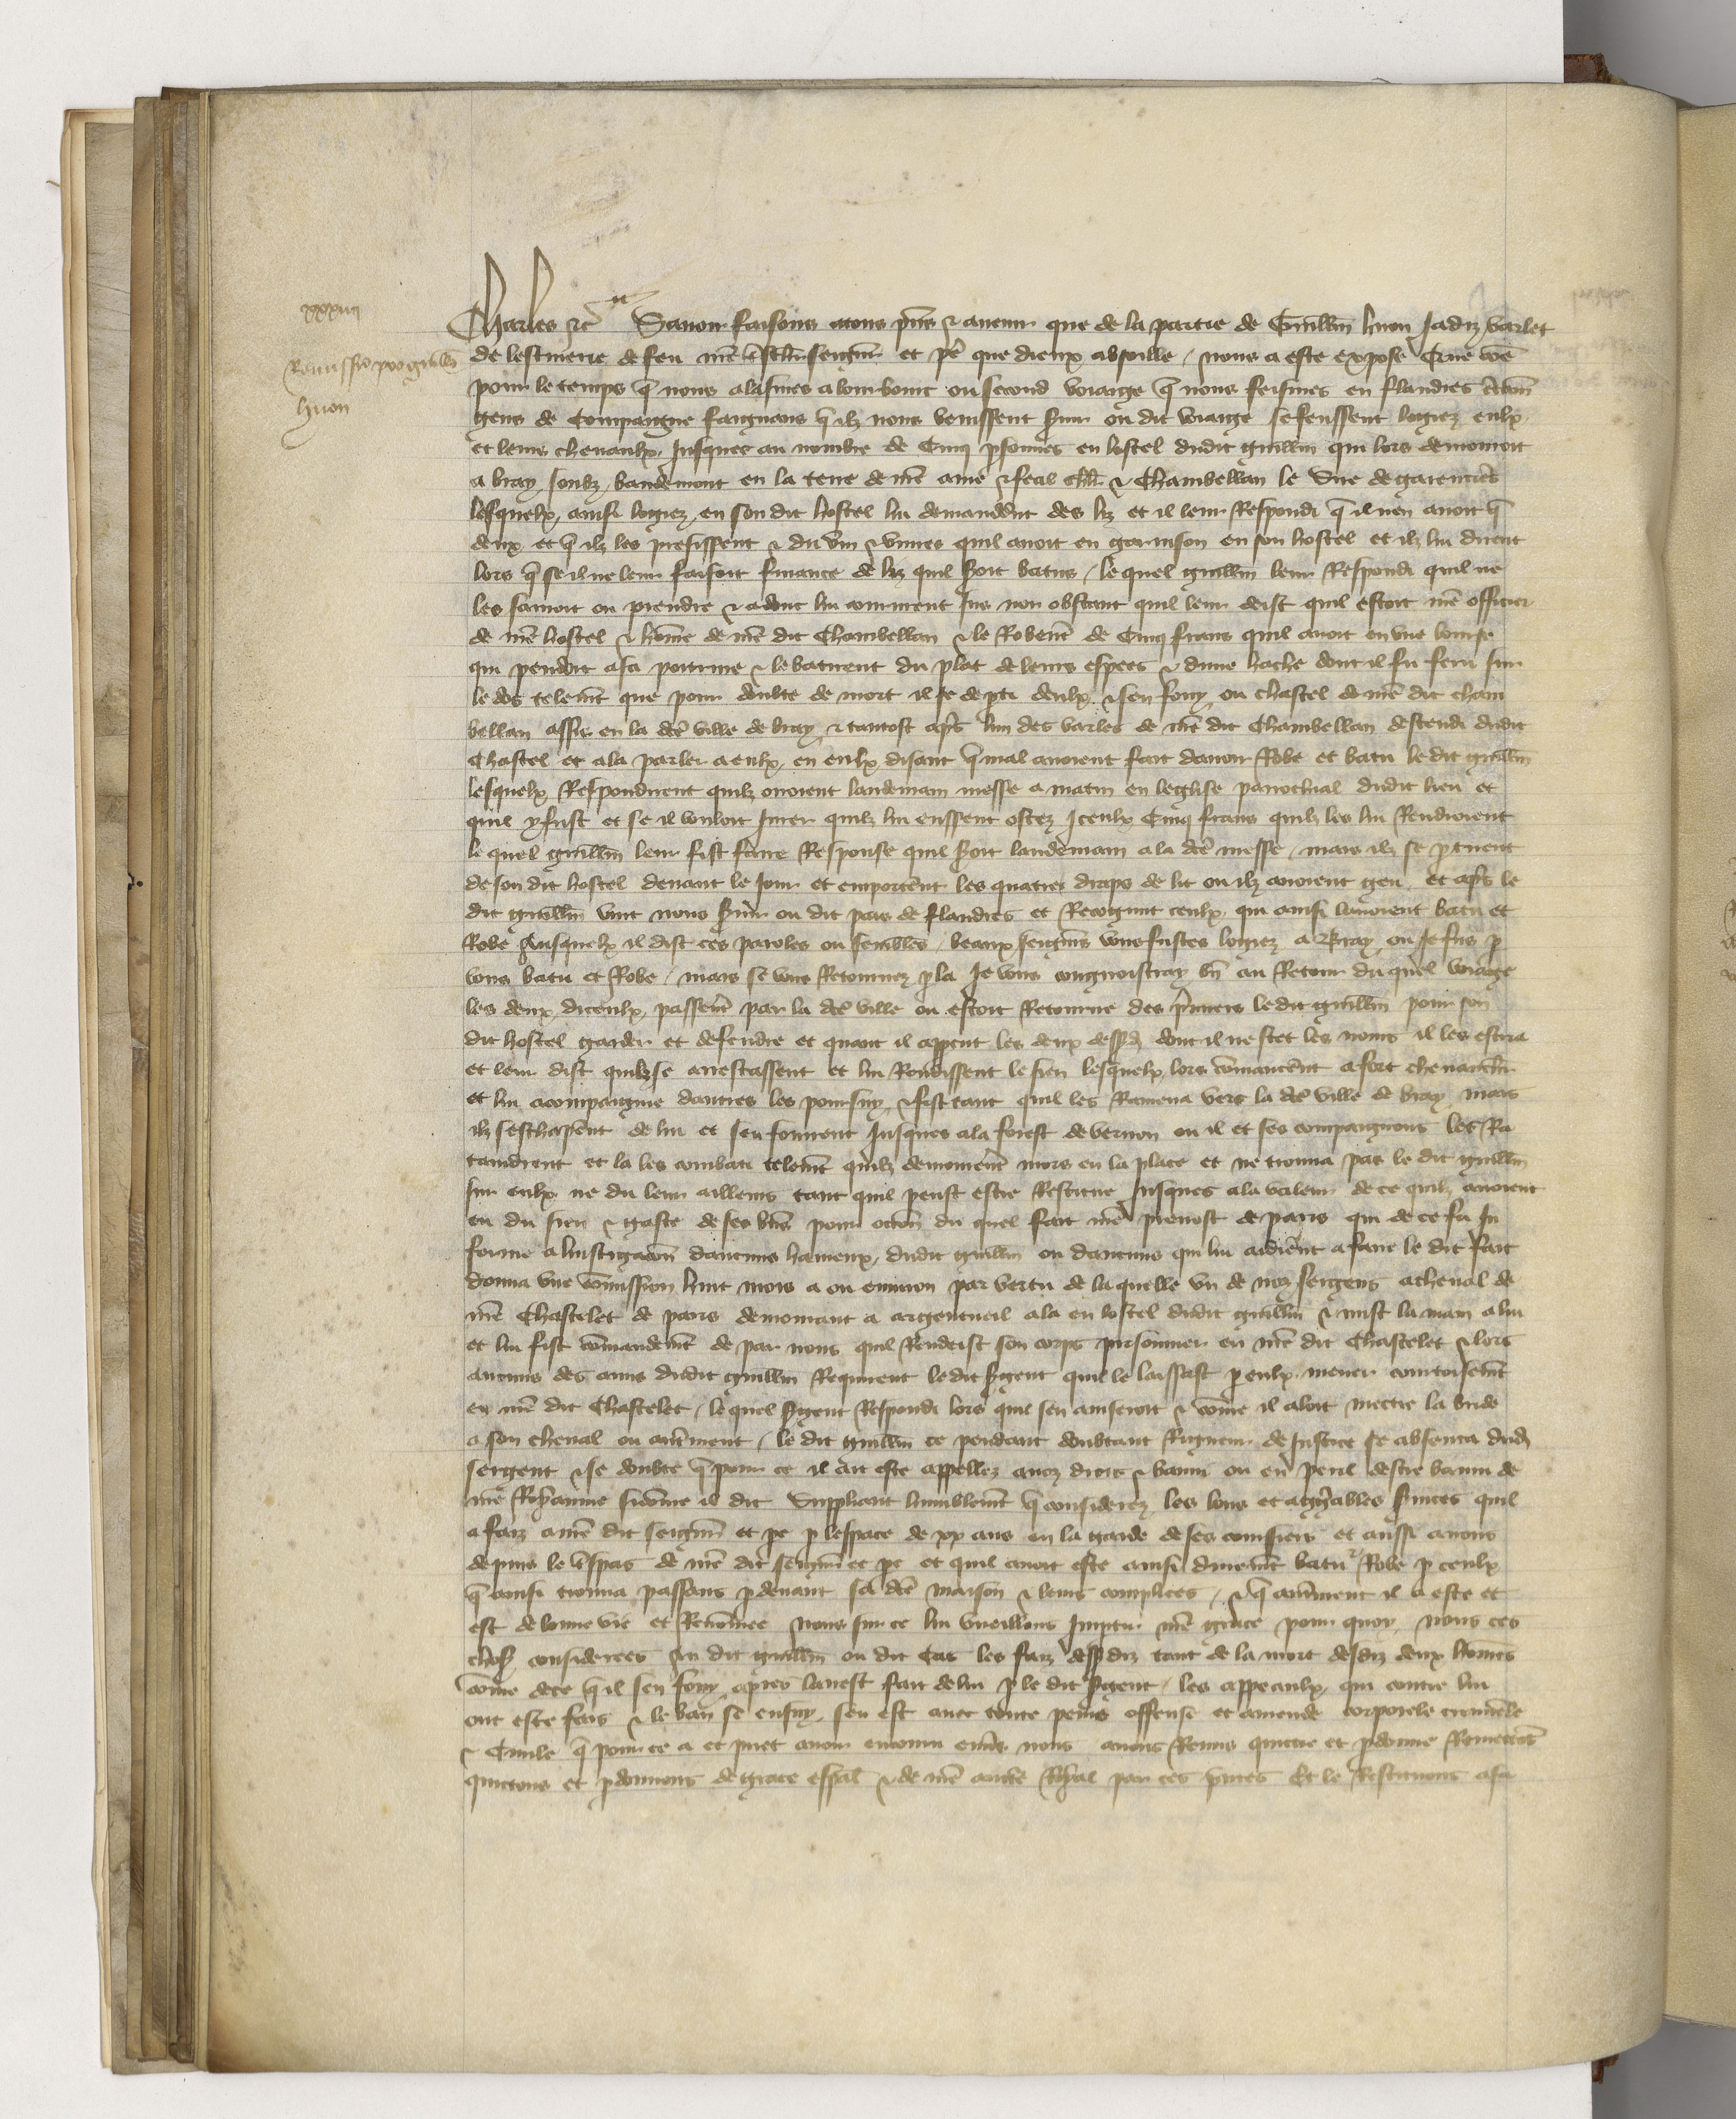 xxxiiii
Remissio pro guillo
huon
Charles etc Savoir faisons a tous pns & avenir que de la partie de Guillm huon jadiz varlet
de lescuierie de feu nre seignr et pe que dieux absoille / nous a este expose que come
pour le temps q nous alasmes a bourbourc ou second voiaige q nous feismes en flandres
gens de compaignie faignans q ilz nous venissent svir ou dit voiaige se feussent logiez eulx
et leurs chevaulx jusques au nombre de Cinq psonnes en lostel dudit guillm qui lors demouroit
a bray soubz baudemont en la terre de nre ame & feal chlr & Chambellan le Sire de garencires
lesquelx ainsi logiez en son dit hostel lui demanderent des liz et il leur Respondi q il nen avoit q
deux et q ilz les preissent & du vin & vivres quil avoit en garnison en son hostel et ilz lui dirent
lors q se il ne leur faisoit finance de liz quil seroit batus / le quel guillm leur Respondi quil ne
les sauroit ou prendre & adonc lui coururent sus non obstant quil leur deist quil estoit nre officier
de nre hostel & home de nre dit Chambellan & le Roberent de Cinq frans quil avoit en une bourse
qui pendoit a sa poitrine & le batirent du plat de leurs espees & dune hache dont il fu feru sur
le dos telemt que pour doubte de mort il se depti deulx & sen fouy ou chastel de nre dit cham
bellan assis en la dce ville de bray & tantost apres lun des varles de nre dit Chambellan descendi dudit
Chastel et ala parler a eulx en eulx disant q mal avoient fait davoir Robe et batu le dit guillm
lesquelx Respondirent quilz orroient landemain messe a matin en leglise parrochial dudit lieu et
quil y fust et se il vouloit jurer quilz lui eussent ostez Iceulx Cinq frans quilz les lui Rendroient
le quel guillm leur fist faire Response quil seroit landemain a la dce messe / mais ilz se ptirent
de son dit hostel devant le jour et emporterent les quatre draps de lit ou ilz avoient geu et apres le
dit guillm vint nous svir ou dit pais de flandres et Recognut ceulx qui ainsi lavoient batu et
Robe Ausquelx il dist ces paroles ou semblables / beaux seigneurs vous fustes logiez a Bray ou Je fus p
vous batu et Robe / mais se vous Retournez p la Je vous congnoistray bn au Retour du quel voiaige
les deux diceulx passerent par la dce ville ou estoit Retourne des premiers ledit guillm pour son
dit hostel garder et defendre et quant il appcut les deux dessusd dont il ne scet les noms il les escria
et leur dist quilz se arrestassent et lui Rendissent le sien lesquelx lors comancerent a fort chevauchier
et lui acompaignie dautres les poursuy & fist tant quil les Ramena vers la dce ville de bray mais
ilz seschaperent de lui et sen fouirent jusques a la forest de vernon ou il et ses compaignons les Ra
taindrent et la les combati telemt quilz demourerent mors en la place et ne trouva pas le dit guillm
sur eulx ne du leur ailleurs tant quil peust estre Restitue jusques a la valeur de ce quilz avoient
eu du sien & gaste de ses bns pour occon du quel fait nre prevost de paris qui de ce fu In
forme a linstigacon daucuns haineux dudit guillm ou daucuns qui lui aidierent a faire le dit fait
donna une comission huit mois a ou environ par vertu de la quelle un de noz sergens a cheval de
nre Chastelet de paris demourant a argentueil ala en lostel dudit guillm & mist la main a lui
et lui fist comandemt de par nous quil Rendeist son corps prisonnier en nre dit Chastelet & lors
aucuns des amis dudit guillm Requirent ledit sgent quil le laissast p eulx mener courtoisemt
en nre dit Chastelet / lequel sgent Respondi lors quil sen aviseroit & come il aloit mectre la bride
a son cheval ou autrement / le dit guillm ce pendant doubtant Rigueur de Justice se absenta dud
sergent & se doubte q pour ce il ait este appellez a noz drois & banni ou en peril destre banni de
nre Royaume sicome il dit Suppliant humblemt q considerez les bons et aggreables svices quil
a faiz a nre dit seignr et pe p lespace de xx ans en la garde de ses coursiers et aussi a nous
depuis le trespas de nre dit seignr et pe et quil avoit este ainsi durement batu & Robe p ceulx
q ainsi trouva passans p devant sa dce maison & leurs complices / & q autrement il a este et
est de bonne vie et Renomee nous sur ce lui vueillons Impartir nre grace pour quoy nous ces
choses considerees au dit guillm ou dit Cas les faiz dessusdiz tant de la mort desdiz deux homes
come de ce q il sen fouy apres larrest fait de lui p le dit sgent / les appeaulx qui contre lui
ont este fais & le ban se ensuy sen est avec toute peine offense et amende corporele criminele
& Civile q pour ce a et puet avoir encouru envers nous avons Remis quictie et pdonne Remectons
quictons et pdonnons de grace espal & de nre auctorite Royal par ces pntes Et le Restituons a sa